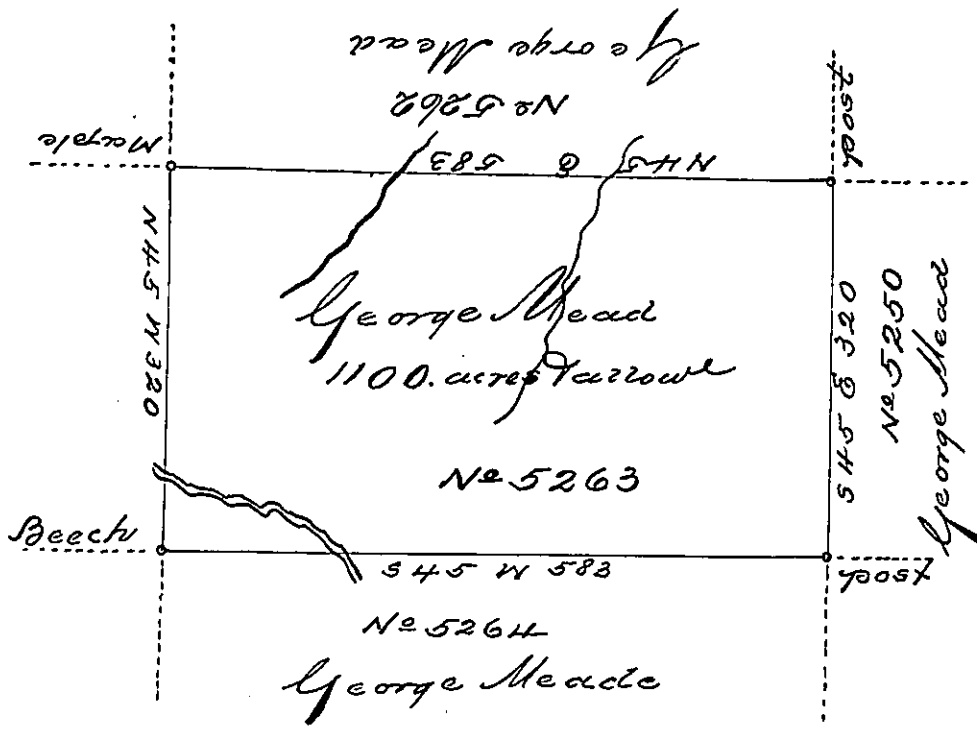 George Mead
Nº 5262
Maple
post
N 45 E 583
N 45 W 320
George Mead
1100. acres & allowe
Nº 5263
S 45 E 320
Nº 5250
George Mead
Beech
post
S 45 W 583
Nº 5264
George Meade